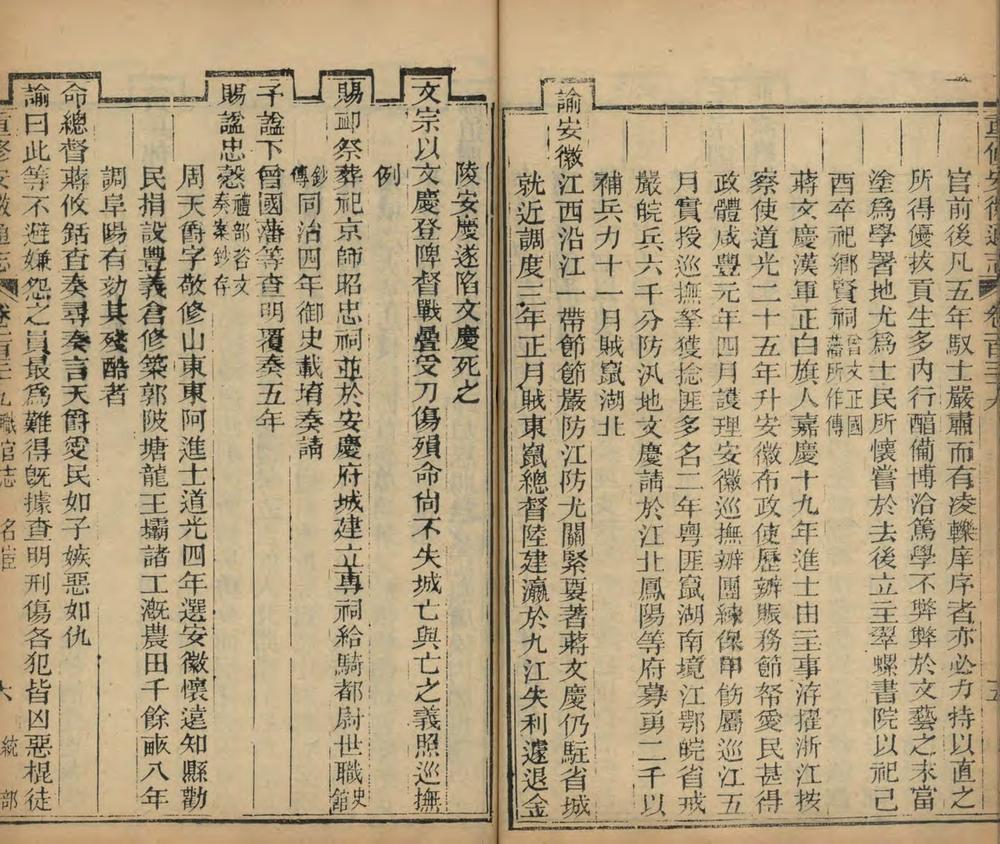 重修安徽通志 卷百三十九 五
官前後凡五年馭士嚴肅而有凌轢庠序者亦必力持以直之
所得優拔貢生多內行醕備博洽篤學不弊弊於文藝之末當
塗爲學署地尤爲士民所懷嘗於去後立主翠螺書院以祀己
酉卒祀鄉賢祠曾文正國藩所作傳
蔣文慶漢軍正白旗人嘉慶十九年進士由主事洊擢浙江按
察使道光二十五年升安徽布政使歷辦賑務節帑愛民甚得
政體咸豐元年四月護理安徽巡撫辦團練保甲飭屬巡江五
月實授巡撫拏獲捻匪多名二年粵匪竄湖南境江鄂皖省戒
嚴皖兵六千分防汛地文慶請於江北鳳陽等府募勇二千以
補兵力十一月賊竄湖北
諭安徽江西沿江一帶節節嚴防江防尤關緊要著蔣文慶仍駐省城
就近調度三年正月賊東竄總督陸建瀛於九江失利遽退金
陵安慶遂陷文慶死之
文宗以文慶登陴督戰疊受刀傷殞命尙不失城亡與亡之義照巡撫
例
賜卹祭葬祀京師昭忠祠並於安慶府城建立專祠給騎都尉世職史館
鈔傳同治四年御史載堉奏請
予諡下曾國藩等查明覆奏五年
賜諡忠愨禮部咨文奏案鈔存
周天爵字敬修山東東阿進士道光四年選安徽懷遠知縣勸
民捐設豐義倉修築郭陂塘龍王壩諸工漑農田千餘畝八年
調阜陽有劾其殘酷者
命總督蔣攸銛查奏尋奏言天爵愛民如子嫉惡如仇
諭曰此等不避嫌怨之員最爲難得旣據查明刑傷各犯皆凶惡棍徒
重修安徽通志 卷百三十九 職官志 名宦 六 統部